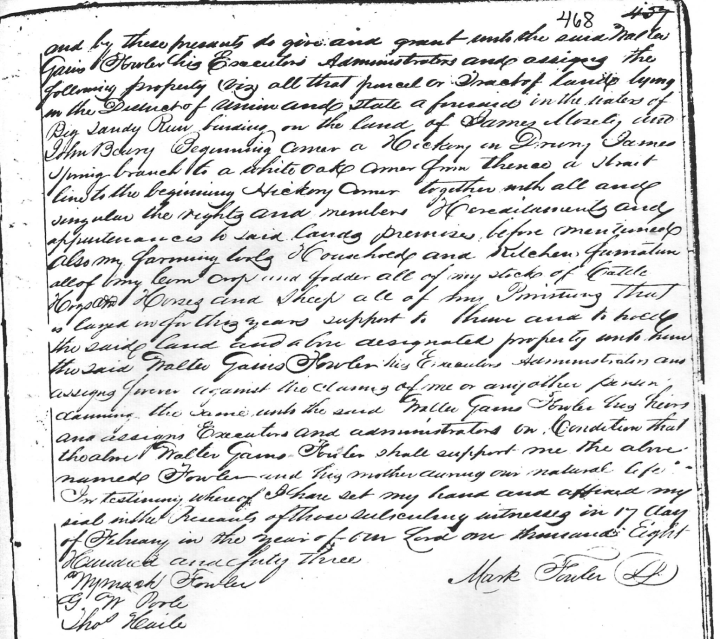 468 457
and by these presents do give and grant unto the said Walter
Gains Fowler his Executors Administrators and assigns the
following property viz all that parcel or Tract of land lying
in the District of Union and State aforesaid in the waters of
Big Sandy Run bunding on the land of James Mosely and
John Beury Beginning Corner a Hickory on Drury James
Spring branch to a white oak Corner from thence a strait
line to the beginning Hickory Corner together with all and
singular the rights and members Hereditaments and
appurtenances to said lands premises before mentioned
Also my farming tools Household and Kitchen furniture
all of my Corn Crop and fodder all of my stock of Cattle
Hogs Horses and Sheep all of my that
is layed in for this years support to have and to hold
the said land and above designated property unto him
the said Walter Gains Fowler his Executors Administrators and
assigns forever against the claims of me or any other person
claiming the same unto the said Walter Gains Fowler his heirs
and assigns Executors and administrators on Condition that
the above Walter Gains Fowler shall support me the above
named Fowler and his mother during our natural life
In testimony whereof I have set my hand and affixed my
seal in the Presents of those subscribing witnesses in 17 day
of February in the year of our Lord one thousand Eight
Hundred and fifty three
Wymack Fowler Mark Fowler
G. W. Poole
Thos Haile